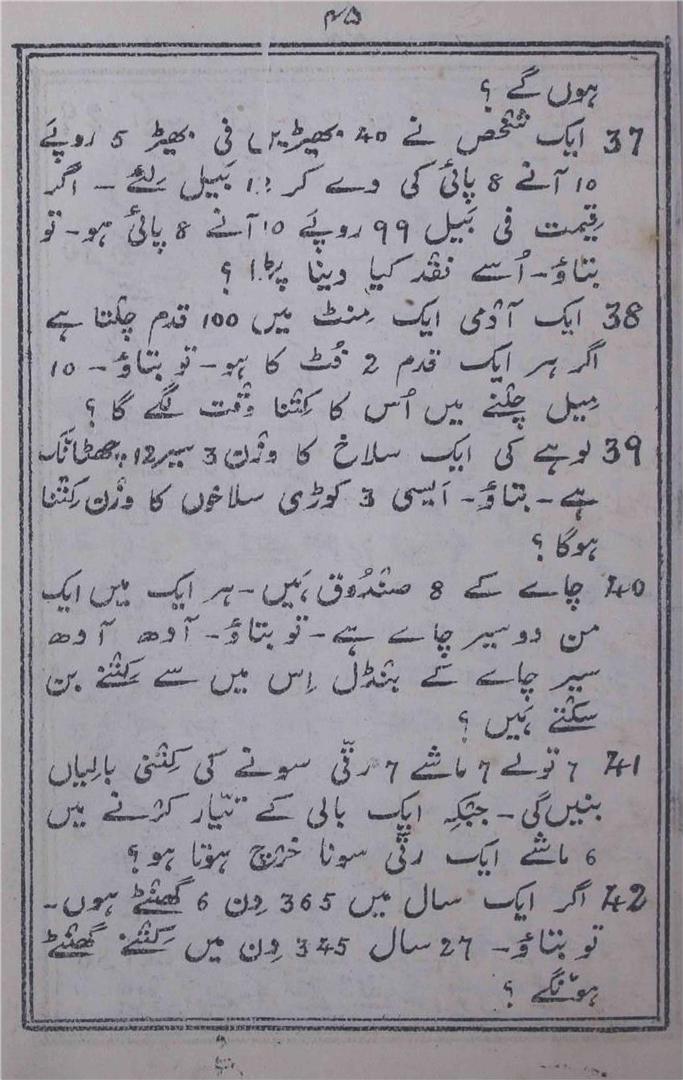 ۴۵
ہوں گے ؟
37 ایک شخص نے 40 بھیڑیں فی بھیڑ 5 روپے
10 آنے 8 پائی کی دے کر بَیل لِئے - اگر
قیمت فی بَیل 99 روپے 10 آنے 8 پائی ہو - تو
بتاؤ - اُسے نقد کیا دینا پڑا ؟
38 ایک آدمی ایک مِنٹ میں 100 قدم چلتا ہے
اگر ہر ایک قدم 2 فُٹ کا ہو - تو بتاؤ - 10
مِیل چلنے میں اُس کا کِتنا وقت لگے گا ؟
39 لوہے کی ایک سلاخ کا وزن 3 سیر 12 چھٹانک
ہے - بتاؤ - اَیسی 3 کوڑی سلاخوں کا وزن کِتنا
ہوگا ؟
40 چاے کے 8 صندُوق ہَیں - ہر ایک میں ایک
من دو سیر چاے ہے - تو بتاؤ - آدھ آدھ
سیر چاے کے بنڈل اِس میں سے کِتنے بن
سکتے ہَیں ؟
41 7 تولے 7 ماشے 7 رتّی سونے کی کِتنی بالِیاں
بنیں گی - جبکہ ایک بالی کے تیّار کرنے میں
6 ماشے ایک رتّی سونا خرچ ہوتا ہو ؟
42 اگر ایک سال میں 365 دِن 6 گھنٹے ہوں -
تو بتاؤ - 27 سال 345 دِن میں کِتنے گھنٹے
ہونگے ؟